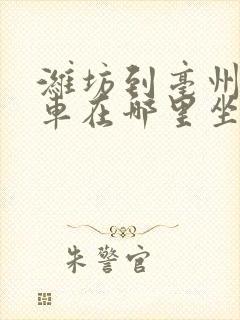 潍坊到亳州
车在哪里坐
朱警官